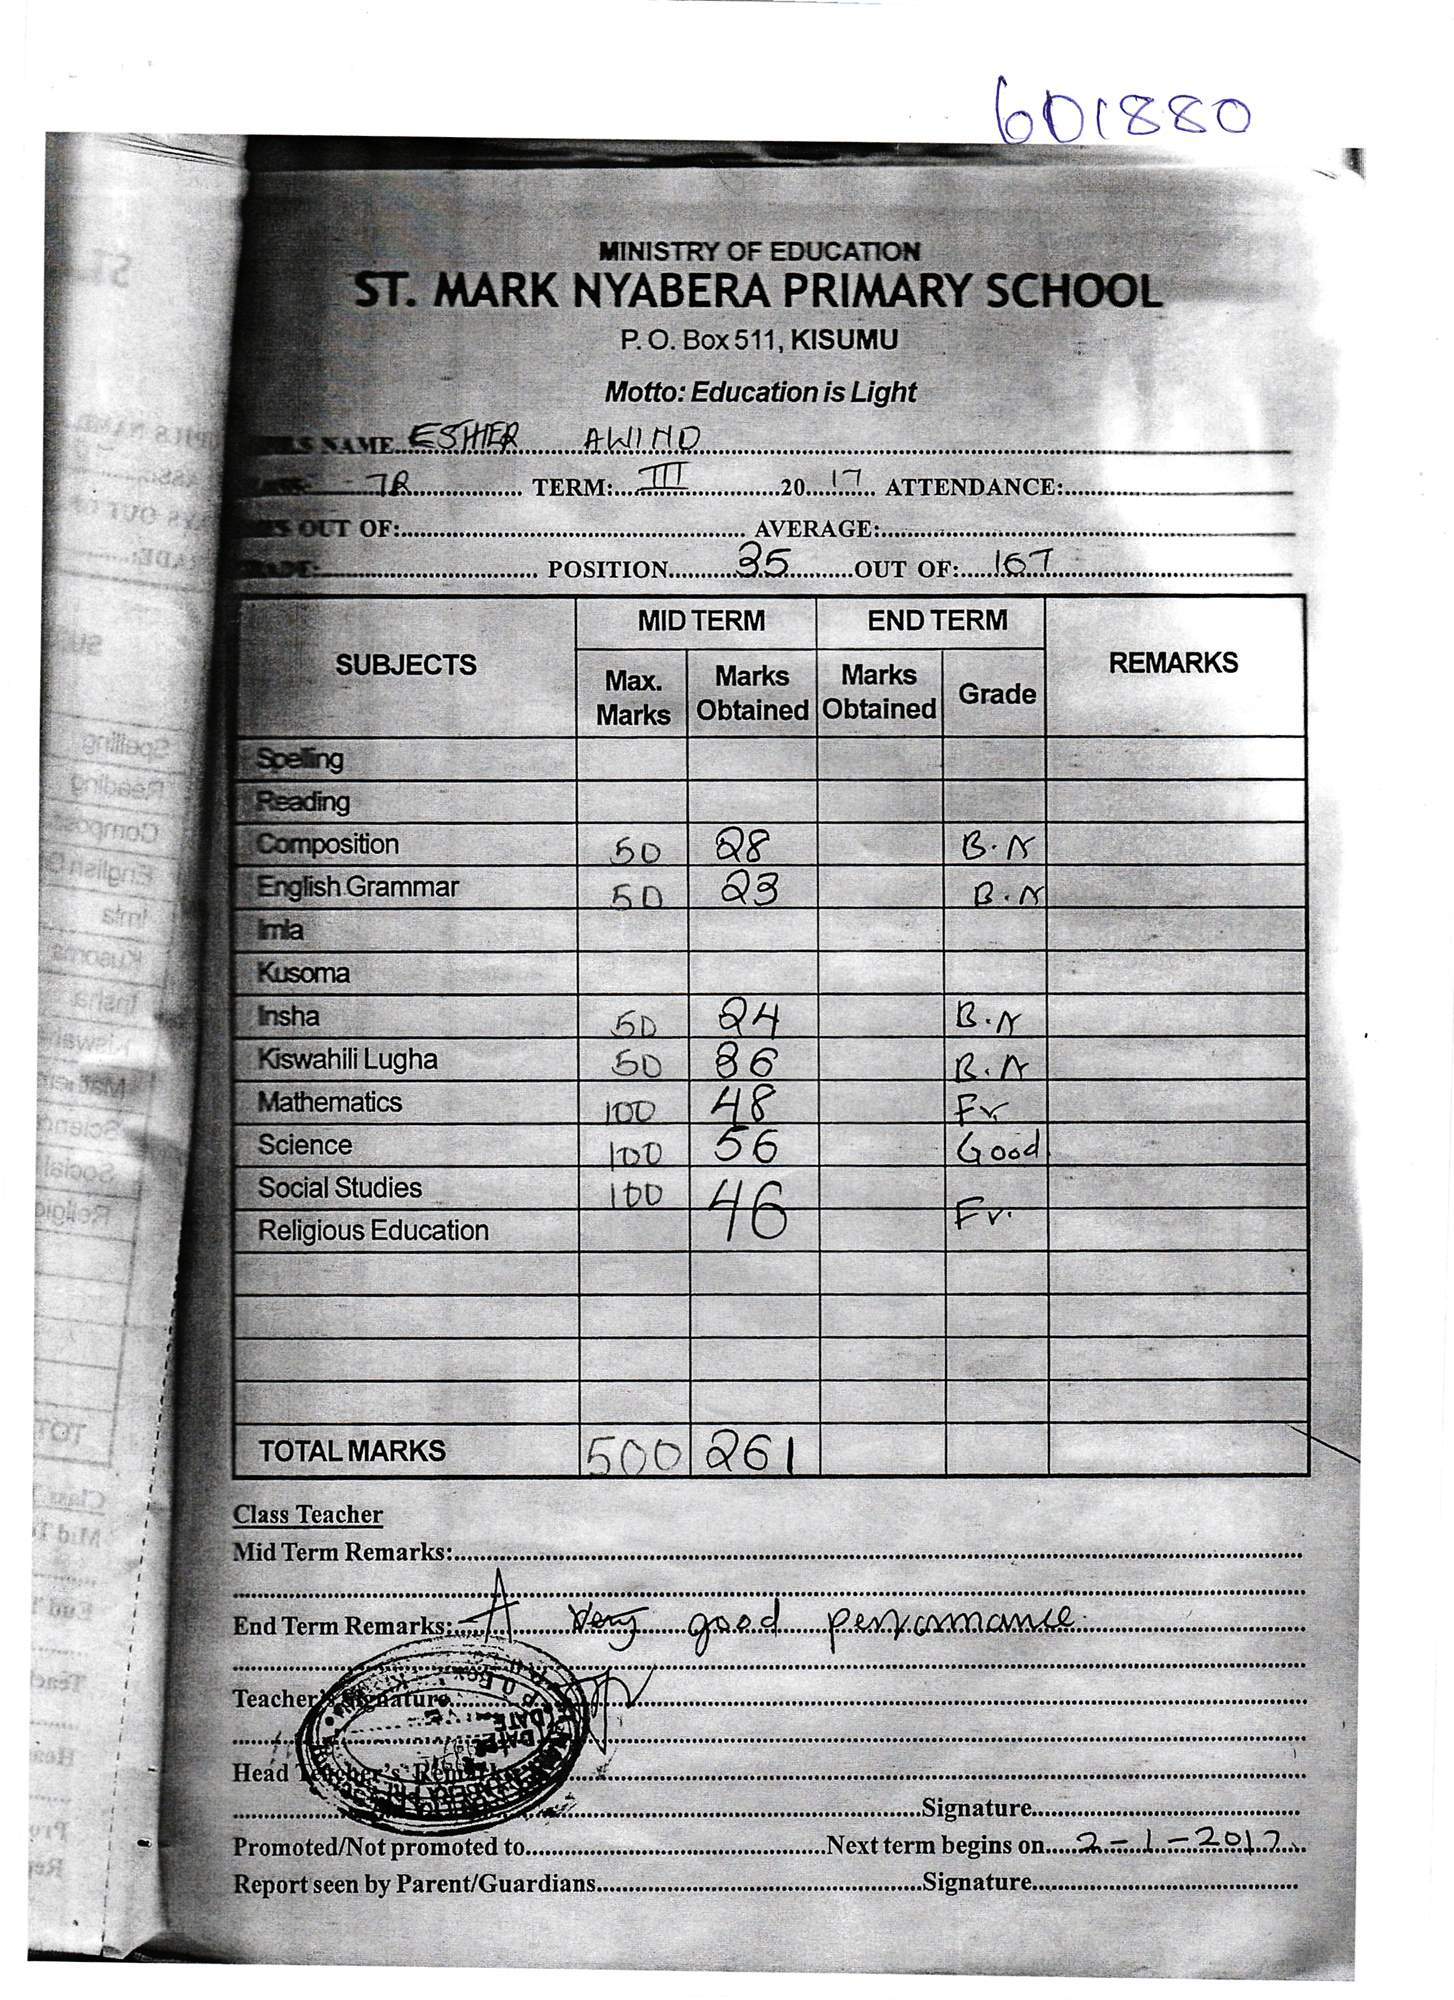 601880
MINISTRY OF EDUCATION
ST. MARK NYABERA PRIMARY SCHOOL
P. O. Box 511, KISUMU
Motto: Education is Light
NAME ESTHER AWINO
7R TERM: III 2017 ATTENDANCE:
OUT OF: AVERAGE:
POSITION 35 OUT OF: 167
SUBJECTS MID TERM END TERM REMARKS
Max. Marks Marks Obtained Marks Obtained Grade
Spelling
Reading
Composition 50 28 B.A
English Grammar 50 23 B.A
Imla
Kusoma
Insha 50 24 B.A
Kiswahili Lugha 50 36 B.A
Mathematics 100 48 Fr
Science 100 56 Good
Social Studies 100 46 Fr.
Religious Education
TOTAL MARKS 500 261
Class Teacher
Mid Term Remarks:
End Term Remarks: A very good performance.
Teacher's Signature
Head Teacher's Remarks
Signature
Promoted/Not promoted to Next term begins on 2-1-2017
Report seen by Parent/Guardians Signature